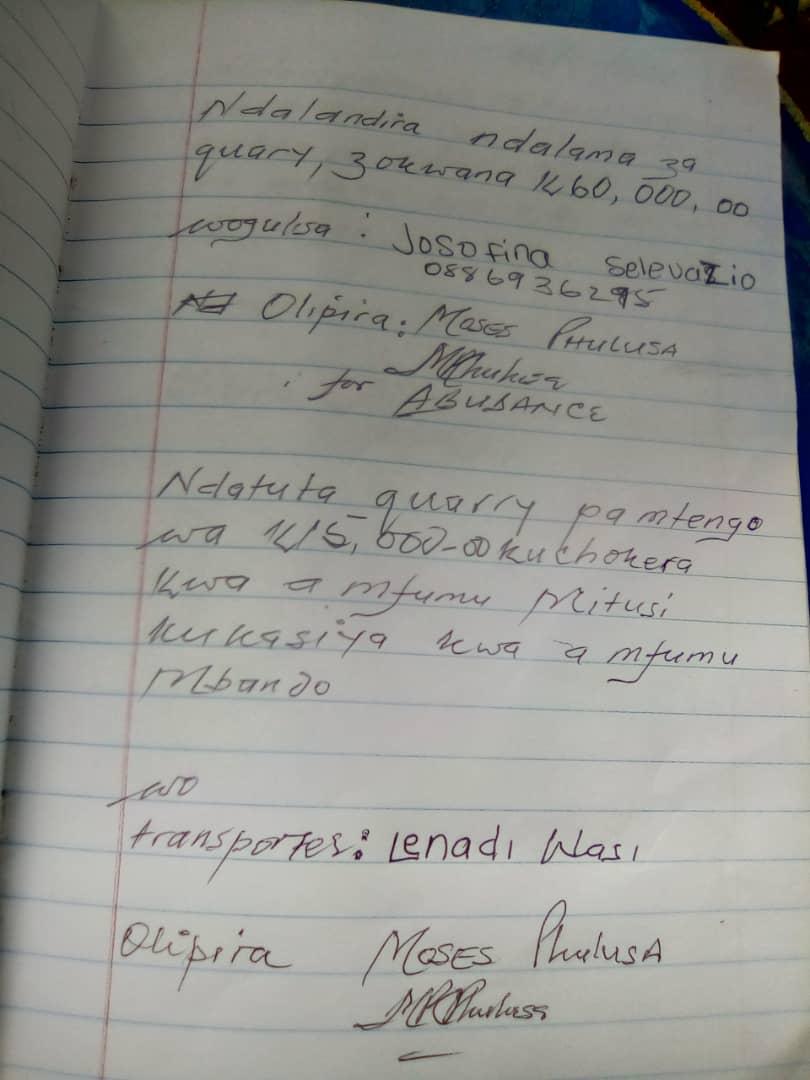 Ndalandira ndalama za
quary, zokwana K60,000,00
wogulsa : Josofina Selevazio
0886936295
Olipira: Moses PHULUSA
for ABUDANCE
Ndatuta quarry pamtengo
wa K15,000-00 kuchokera
kwa a mfumu Mitusi
kukasiya kwa a mfumu
Mbando
wo
transportes: Lenadi Wasi
Olipira Moses PhulusA